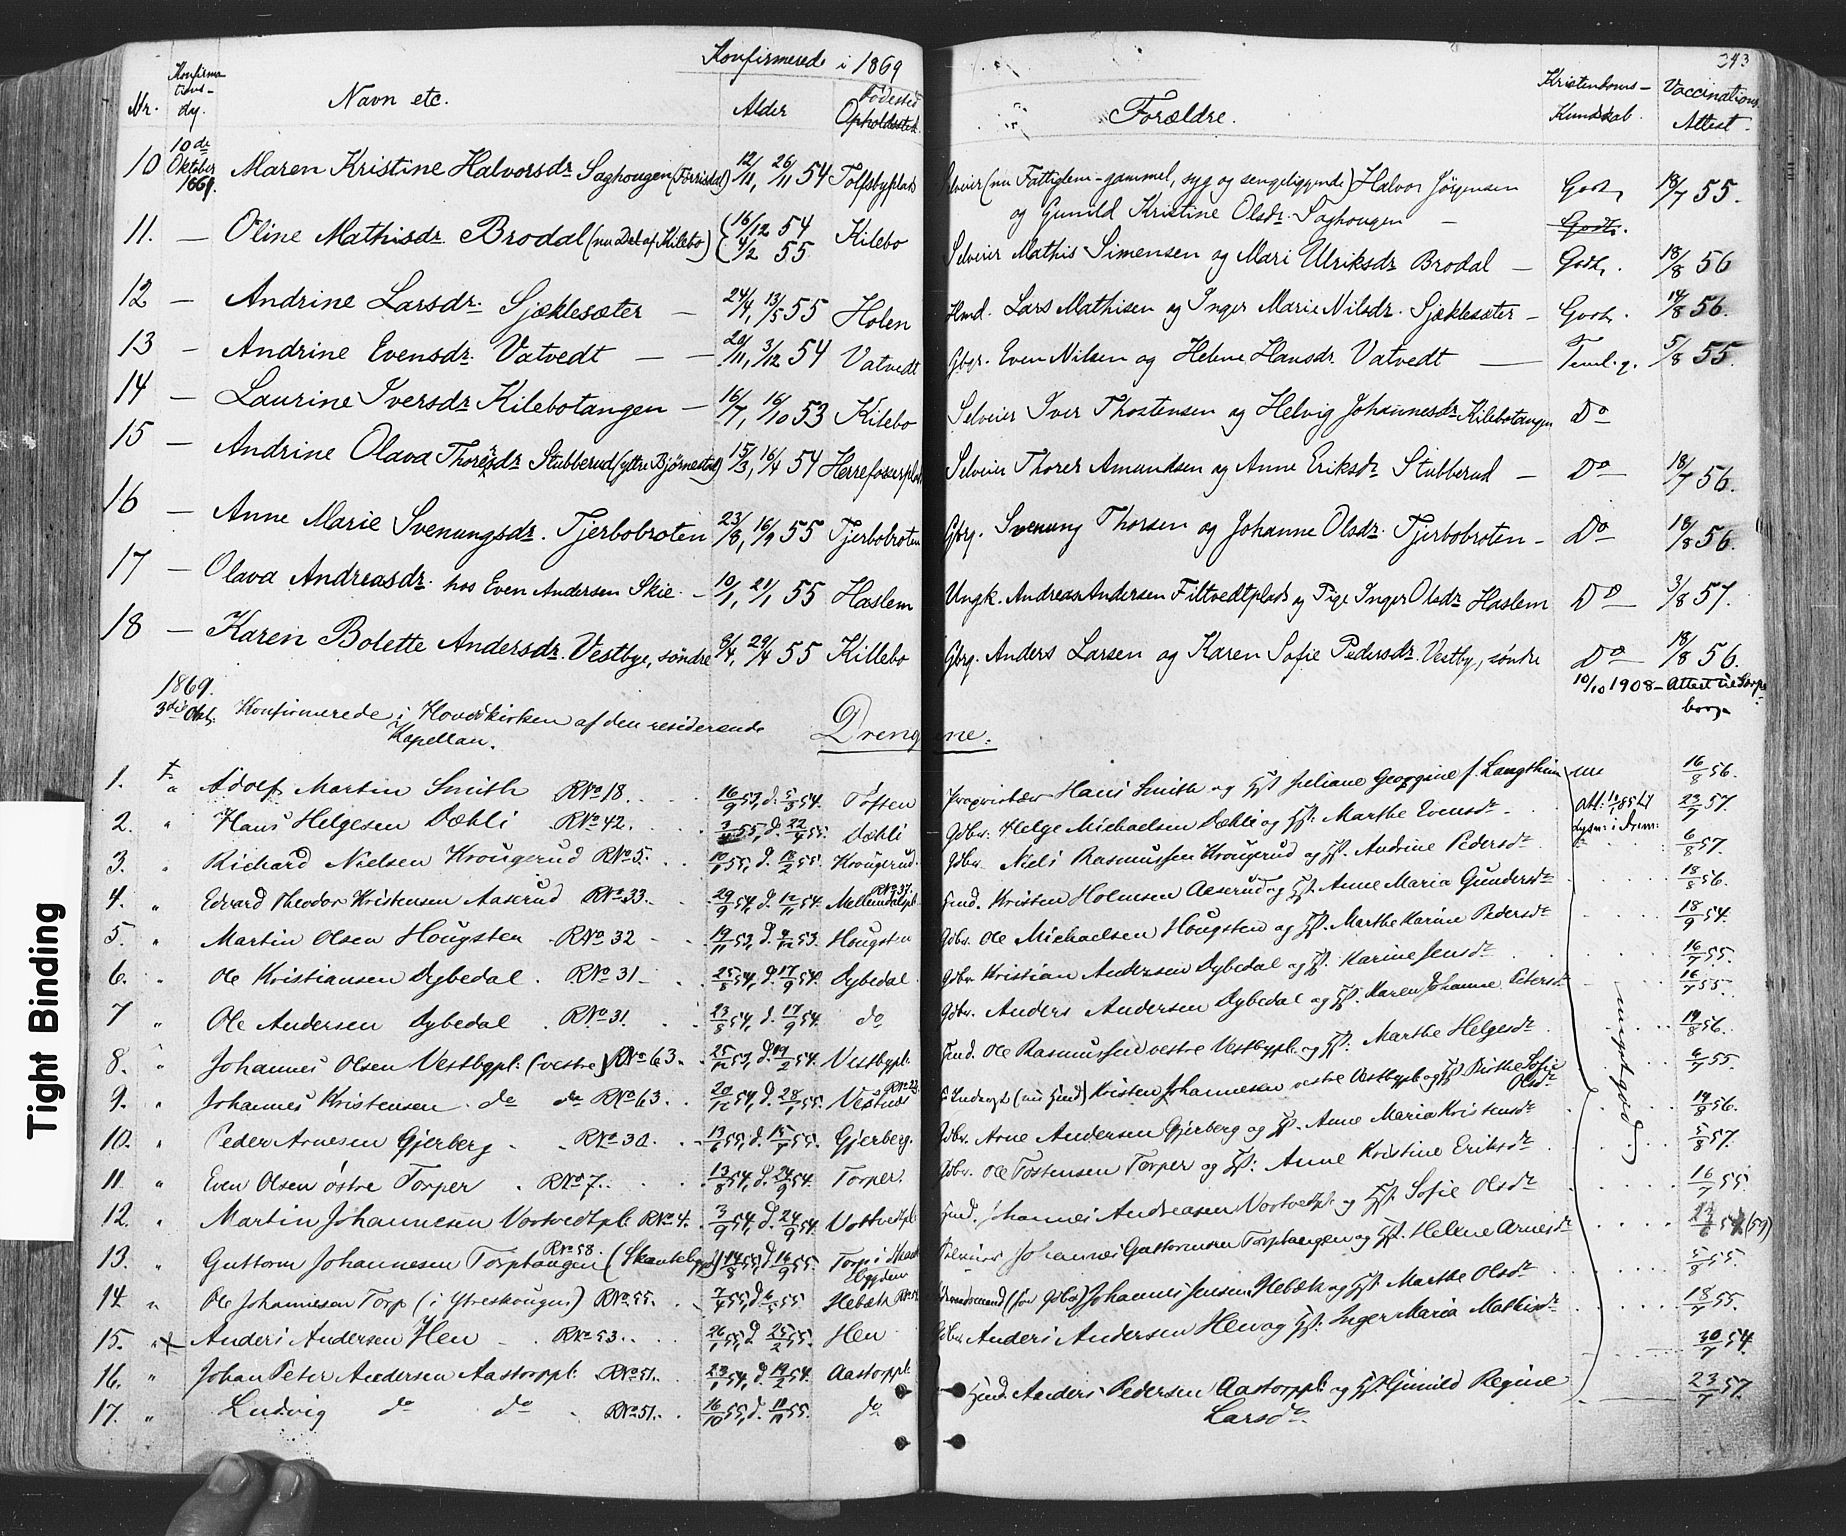 Konfirmerede i 1869
243
Nr. Konfirmations-dg. Navn etc. Alder Fødested Opholdssted Forældre. Kristendoms-Kundskab. Vaccinations Attest.
10 10de Oktober 1869. Maren Kristine Halvorsdr. Saghougen 12/11, 26/11 54 Tolfsbyplads Selveier (nu Fattiglem - gammel, syg og sengeliggende) Halvor Jørgensen Godt, 18/7 55.
og Gunild Kristine Olsdr. Saghougen — Godt.
11. — Oline Mathisdr. Brodal (nu Del af Kilebo) 16/12 54 4/2 55 Kilebo Selveier Mathis Simensen og Mari Ulriksdr Brodal — Godt. 18/8 56
12 — Andrine Larsdr. Sjæklesæter — 24/4, 13/5 55 Holen Hmd. Lars Mathisen og Inger Marie Nilsdr. Sjæklesæter — Godt. 14/8 56.
13 — Andrine Evensdr. Vatvedt — — 20/11, 3/12 54 Vatvedt Gbr. Even Nilsen og Helene Hansdr. Vatvedt — Teml. g. 5/8 55.
14 — Laurine Iversdr Kilebotangen — 16/7, 16/10 53 Kilebo Selveier Iver Thostensen og Helvig Johannesdr Kilebotangen Do
15 — Andrine Olava Thoresdr Stubberud (yttre Bjørnestad) 15/3, 16/4 54 Selveier Thorer Amundsen og Anne Eriksdr Stubberud — Do — 18/7 56.
16 — Anne Marie Svenungsdr. Tjerbobroten 23/8, 16/9 55 Tjerbobroten Gbrg. Svenung Thorsen og Johanne Olsdr. Tjerbobroten — Do — 18/8 56.
17 — Olava Andreasdr. hos Even Andersen Skie. — 10/1, 21/1 55 Haslem Ungk. Andreas Andersen Filtvedtplads og Pige Inger Olsdr Haslem Do — 3/8 57.
18 — Karen Bolette Andersdr. Vestbye, søndre 8/4, 29/4 55 Killebo Gbrg. Anders Larsen og Karen Sofie Pedersdr. Vestby, søndre Do — 18/8 56.
10/10 1908 — Attest til
borg
1869. 3die Okt. Konfirmerede i Hovedkirken af den residerende
Kapellan.
Drengene.
1. Adolf Martin Smith RNo 18. 16/9 53, d. 5/3 54. Toften Proprietær Hans Smith og Hst. Juliane Georgine f. 16/8 56.
2. " Hans Helgesen Dæhli RNo 42. 55, d. 22/4 55. Dæhli Gdbr. Helge Michaelsen Dæhli og Hst. Marthe Evensdr. 23/7 57.
3. " Richard Nielsen Krougerud RNo 5. 10/1 55, d. 18/2 55. Krougerud. Gdbr. Niels Rasmussen Krougerud og Hst. Andrine Pedersdr. 6/8 57.
4. " Edvard Theodor Kristensen Aaserud RNo 33. 29/9 54, d. 12/11 54. Mellemdalpl. RNo 37. Hmd. Kristen Holmsen Aaserud og Hst. Anne Maria Gundersdr 18/8 56.
5. " Martin Olsen Hougsten RNo 32 19/11 53, d. 4/12 53. Hougsten Gdbr. Ole Michaelsen Hougsten og Hst. Marthe Karine Pedersdr 18/9 54.
6. " Ole Kristiansen Dybedal. RNo 31 25/8 54, d. 17/9 54. Dybedal. Gdbr. Kristian Andersen Dybedal og Hst. Karine Jensdr 16/7 55.
7 " Ole Andersen Dybedal. RNo 31. 23/8 54, d. 17/9 54. do Gdbr. Anders Andersen Dybedal og Hst. Karen Johanne Petersdr 16/7 55.
8. " Johannes Olsen Vestbypl. (vestre) RNo 63. 25/12 53, d. 19/2 54. Vestbypl. Hmd. Ole Rasmussen vestre Vestbypl. og Hst. Marthe Helgesdr 19/8 56.
9. " Johannes Kristensen do do RNo 63. 20/12 54, d. 28/1 55. Vestnæs RNo 22. (nu Hmd) Kristen Johannesen vestre Vestbypl. og Hst. Dirthe Sofie Olsdr 6/7 55.
10. " Peder Arnesen Gjerberg RNo 30. 13/6 55, d. 15/7 55. Gjerberg. Gdbr. Arne Andersen Gjerberg og Hst. Anne Maria Kristensdr 19/8 56.
11 " Even Olsen østre Torper RNo 7. 13/8 54, d. 24/9 54. Torper. Gdbr. Ole Tostensen Torper og Hst. Anne Kristine Eriksdr 5/8 57.
12. " Martin Johannesen Vostvedtpl. RNo 4. 3/9 54, d. 24/9 54. Vostvedtpl. Hmd. Johannes Andreasen Vostvedtpl. og Hst. Sofie Olsdr 16/7 55.
13. " Guttorm Johannesen Torptangen RNo 58. (Skautebygd) 14/8 55, d. 16/9 55. Torp i Skautebygden Selveier Johannes Guttormsen Torptangen og Hst. Helene Arnesdr
14 " Ole Johannesen Torp (i Ytreskougn) RNo 55. 7/4 55, d. 6/5 55. Hebæk (før Gdbr.) Johannes Jensen Hebæk og Hst. Marthe Olsdr 5/8 55.
15. " Anders Andersen Hen RNo 53. 26/1 55, d. 25/2 55. Hen Gdbr. Anders Andersen Hen og Hst. Inger Maria Mathisdr 18/7 55.
16. " Johan Peter Andersen Aastorppl. RNo 51. 23/1 54, d. 19/2 54. Aastorppl. Hmd. Anders Pedersen Aastorppl. og Hst. Gunild Regine Larsdr 30/7 54.
17. " Ludvig do do RNo 51. 16/10 55, d. 55. do 23/7 57.
meget godt
Tight Binding